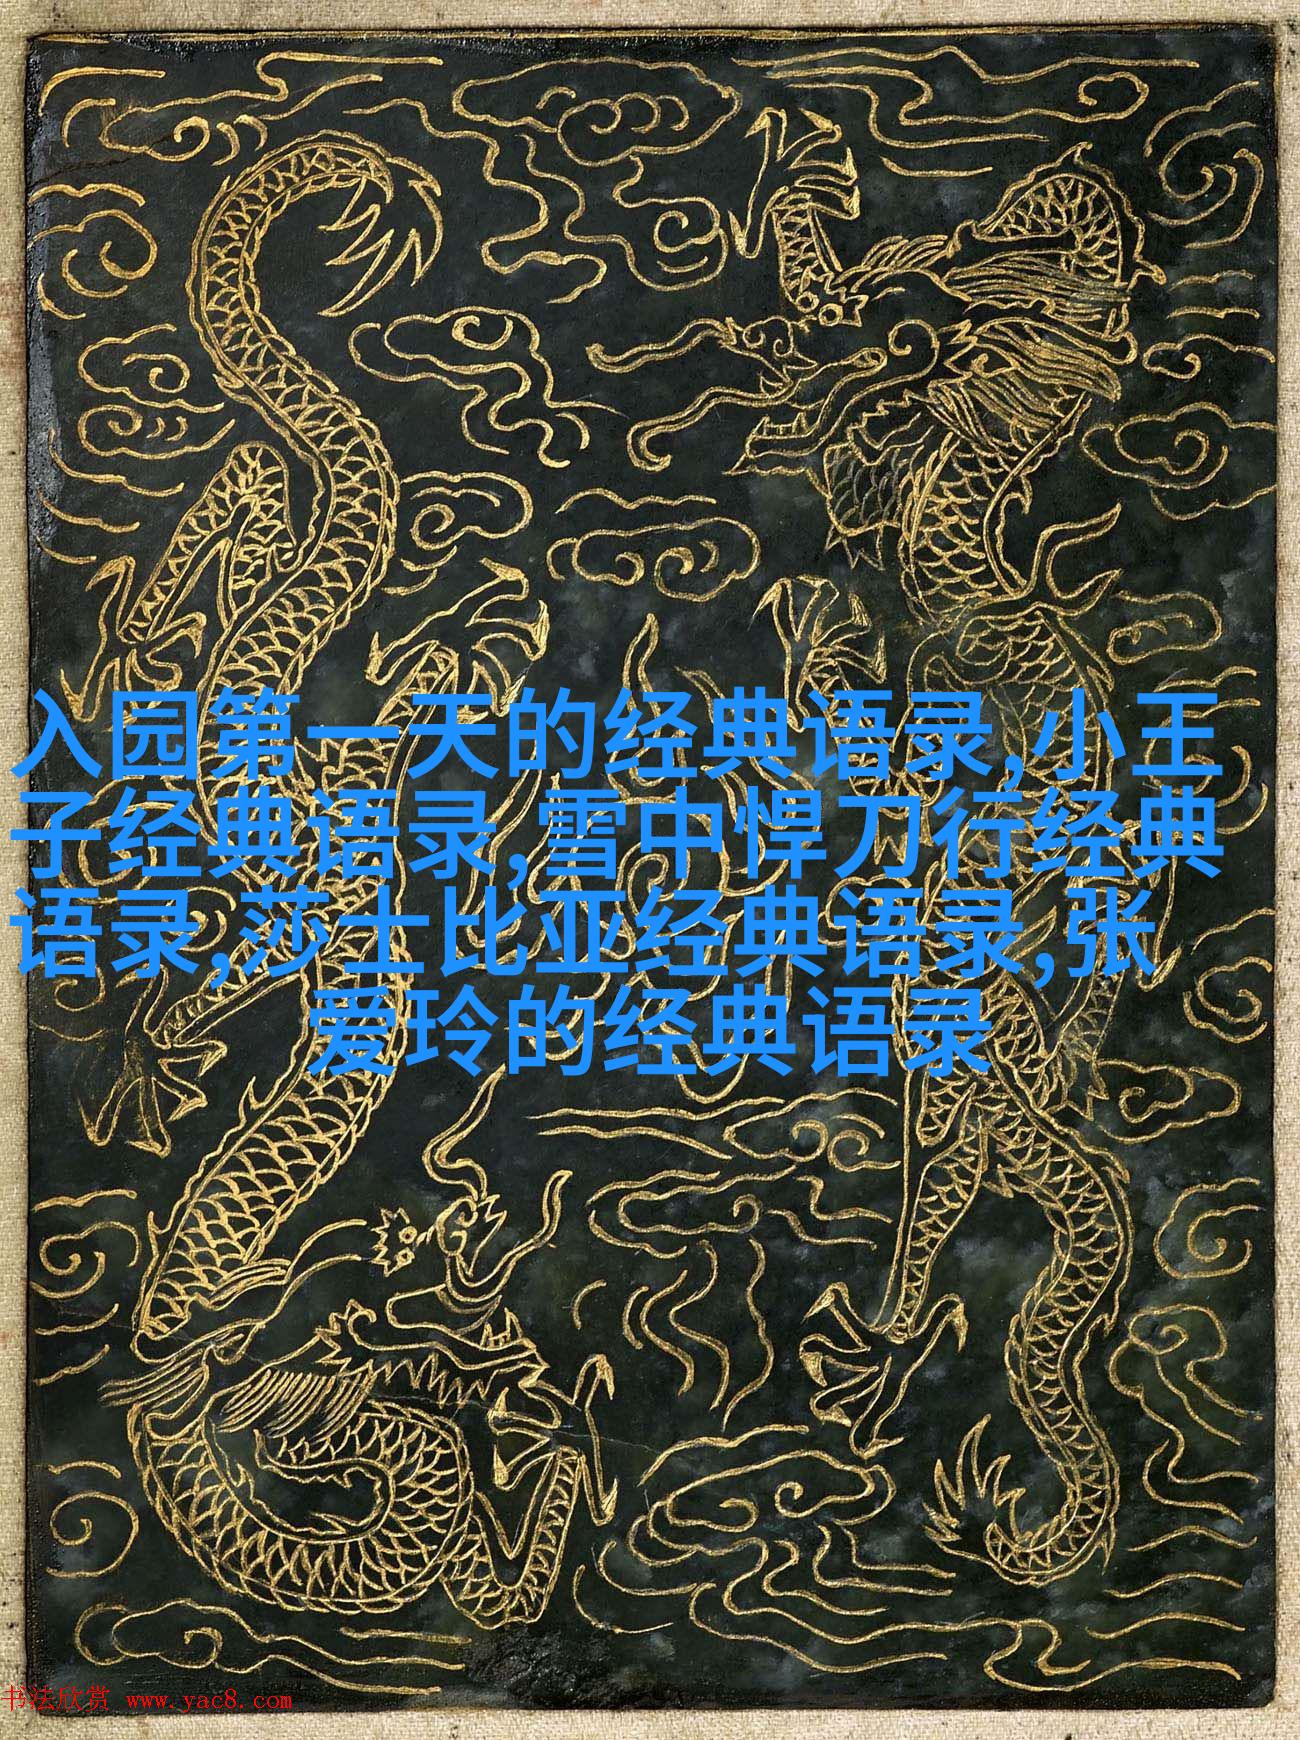 入园第一天的经典语录,小王
子经典语录,雪中悍刀行经典
语录,莎士比亚经典语录,张
爱玲的经典语录
书法欣赏 www.yac8.com